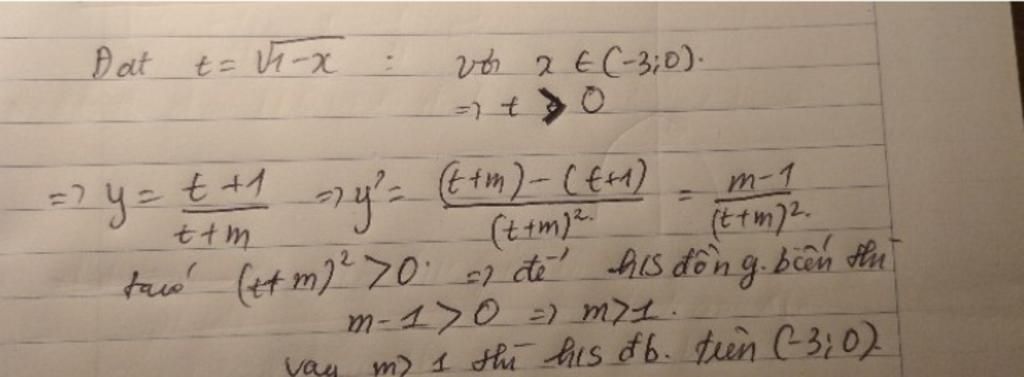 Đặt t = √1-x : với x ∈ (-3;0).
=> t > 0
=> y = (t+1)/(t+m) => y' = ((t+m)-(t+1))/(t+m)². = (m-1)/(t+m)².
ta có (t+m)² > 0. => để h/s đồng. biến thì
m-1 > 0 => m>1.
vay m> 1 thì h/s đb. trên (-3;0)